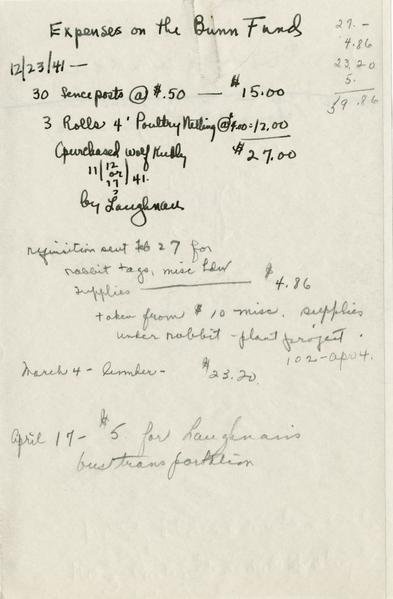 Expenses on the Bunn Fund
27.-
4.86
23.20
5.
59.86
12/23/41 —
30 fenceposts @ $.50 — $15.00
3 Rolls 4' Poultry Netting @ $4.00 = 12.00
$27.00
(purchased Wolf Kubly
11/12 or 17?/41.
by Laughnan
requisition sent Feb 27 for
rabbit tags, misc
supplies — $4.86
taken from $10 misc. supplies
under rabbit-plant project.
102-apr 4.
March 4 - Lumber - $23.20
April 17 - $5. for Laughnan's
bus transportation